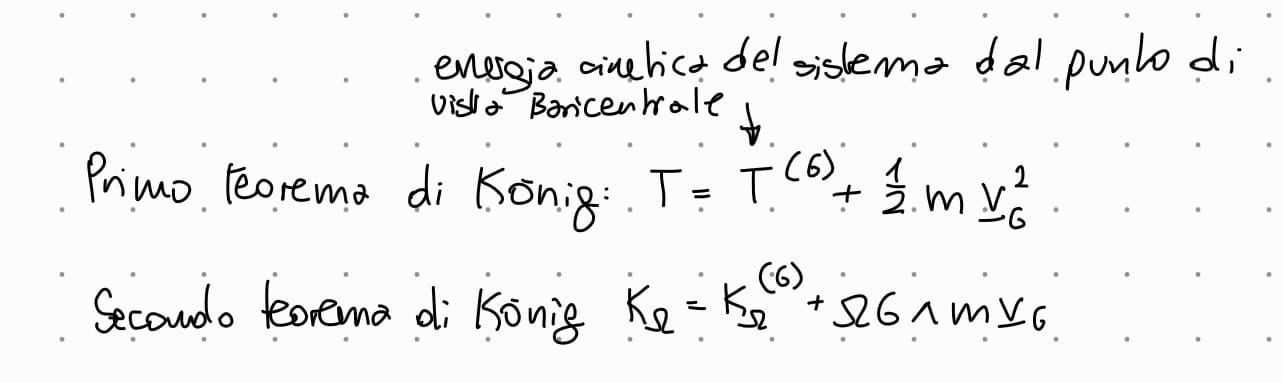 energia cinetica del sistema dal punto di
vista Baricentrale ↓
Primo teorema di König: T = T^(G) + 1/2 m v_G^2
Secondo teorema di König K_Ω = K_Ω^(G) + ΩG ∧ m v_G